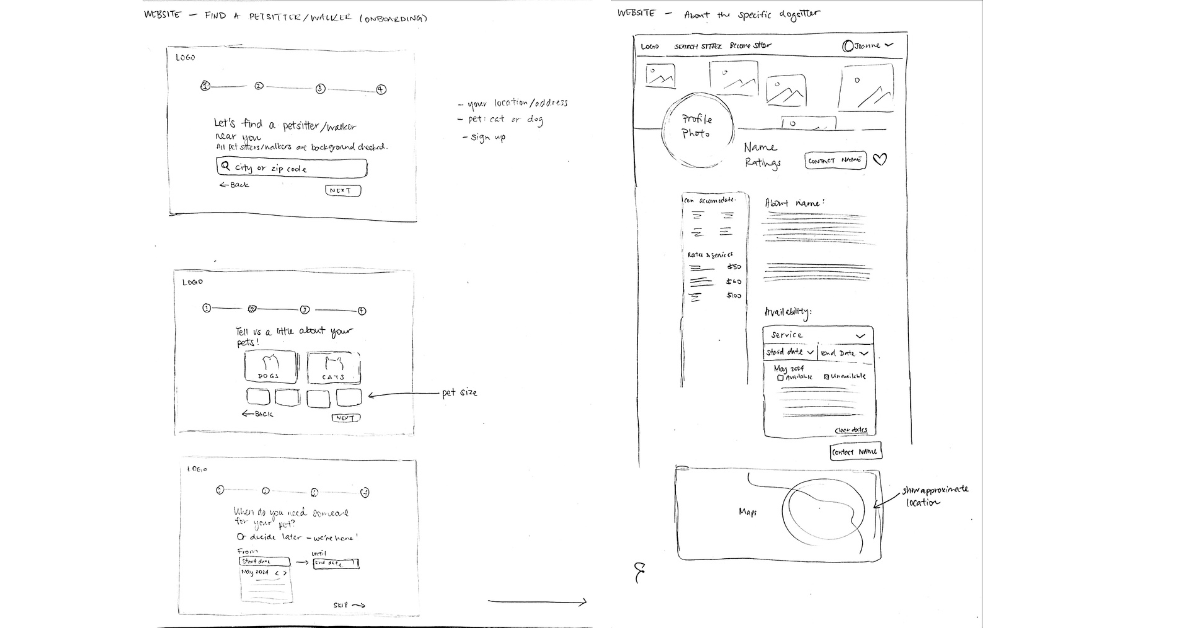 WEBSITE – FIND A PETSITTER/WALKER (ONBOARDING)
LOGO
1 2 3 4
Let's find a petsitter/walker
near you
All pet sitters/walkers are background checked.
city or zip code
← Back
NEXT
- your location/address
- pet: cat or dog
- sign up
LOGO
1 2 3 4
Tell us a little about your
pets!
DOGS
CATS
pet size
← BACK
NEXT
LOGO
When do you need someone
for your pet?
Or decide later – we're here!
From
until
Start date
End date
May 2024 < >
SKIP →
WEBSITE – About the specific dogsitter
LOGO SEARCH SITTER Become sitter
Joanne
Profile
Photo
Name
Ratings
CONTACT NAME
Can accomodate:
Rates & Services
$50
$60
$100
About name:
Availability:
Service
Start date
End Date
May 2024
Available
Unavailable
Clear dates
Contact Name
Maps
show approximate
location